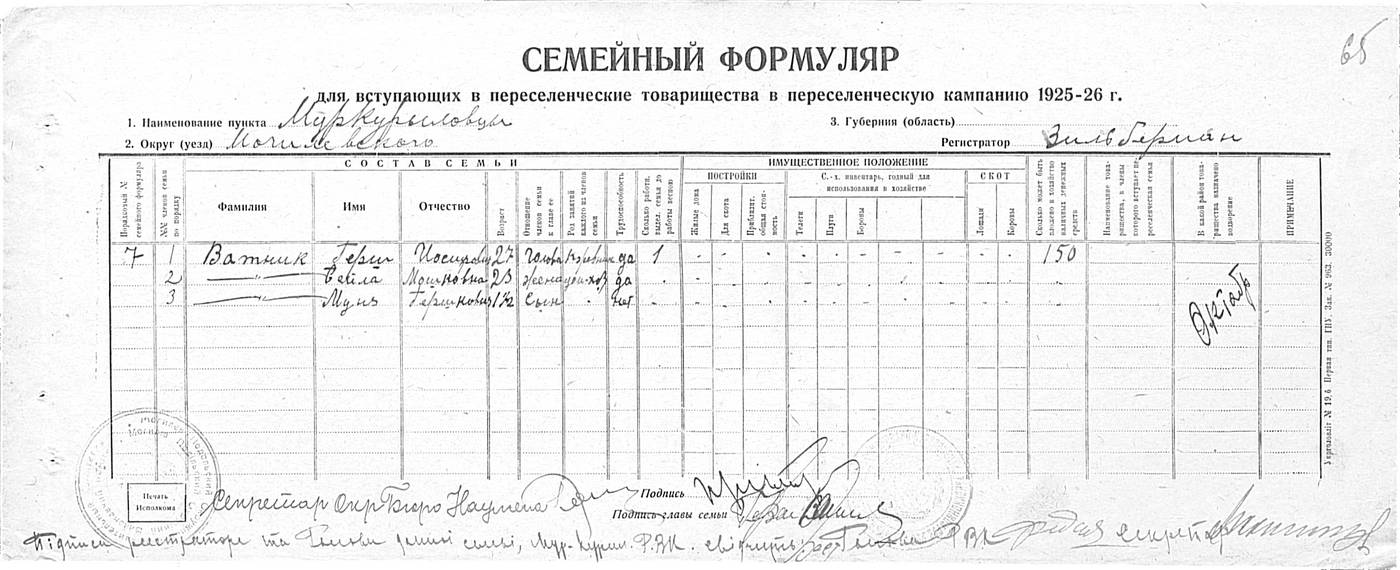 65
СЕМЕЙНЫЙ ФОРМУЛЯР
для вступающих в переселенческие товарищества в переселенческую кампанию 1925-26 г.
1. Наименование пункта Муркурыловцы 3. Губерния (область)
2. Округ (уезд) Могилевского Регистратор Зильберман
СОСТАВ СЕМЬИ ИМУЩЕСТВЕННОЕ ПОЛОЖЕНИЕ
ПОСТРОЙКИ С.-х. инвентарь, годный для использования в хозяйстве СКОТ
Порядковый № семейного формуляра
№№ членов семьи по порядку
Фамилия
Имя
Отчество
Возраст
Отношение членов семьи к главе ее
Род занятий каждого из членов семьи
Трудоспособность
Сколько работн. выдел. семья до работы весною
Жилые дома
Для скота
Приблизит. общая стоимость
Телеги
Плуги
Бороны
Лошади
Коровы
Сколько может быть вложено в хозяйство наличных денежных средств
Наименование товарищества, в члены которого вступает переселенческая семья
В какой район товарищества назначено водворение
ПРИМЕЧАНИЕ
7 1 Ватник Герш Иосипович 27 Голова да 1 - - - - - - - - 150
2 —„— Бейла Мошковна 23 жена дом-хоз да
3 —„— Муня Гершкович 1½ Сын - нет
Октябр
Печать Исполкома
Секретар Окр Бюро Наумена
Подпись
Подпись главы семьи
Підписи реєстратора та Голови даної семьі, Мур-Курил. Р.В.К. свідчить: Голова РВК Секретар
Укрголовліт № 19,6 Первая тип. ГПУ, Зак. № 963. 30000